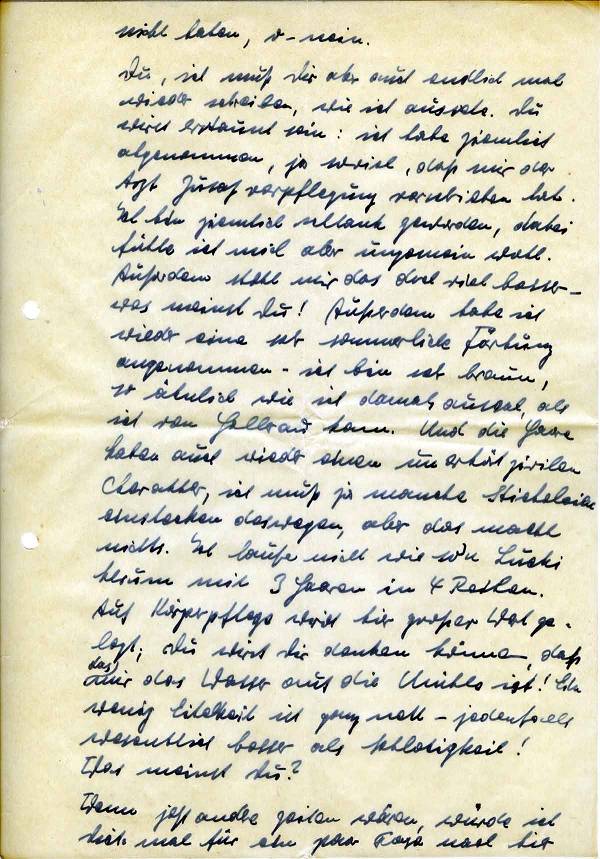 nicht haben, o-nein.
Du, ich muß Dir aber auch endlich mal
wieder schreiben, wie ich aussehe. Du
wirst erstaunt sein: ich habe ziemlich
abgenommen, ja soviel, daß mir der
Arzt Zusatzverpflegung verschrieben hat.
Ich bin ziemlich schlank geworden, dabei
fühle ich mich aber ungemein wohl.
Außerdem steht mir das doch viel besser –
was meinst Du! Außerdem habe ich
wieder eine sehr sommerliche Färbung
angenommen – ich bin sehr braun,
so ähnlich wie ich damals aussah, als
ich von kam. Und die Haare
haben auch wieder einen unerhört zivilen
Charakter, ich muß ja manche Sticheleien
einstecken deswegen, aber das macht
nichts. Ich laufe nicht wie so'n Lucki
herum mit 3 Haaren in 4 Reihen.
Auf Körperpflege wird hier großer Wert ge-
legt; Du wirst Dir denken können, daß
das mir das Wasser auf die Mühle ist! Ein
wenig Eitelkeit ist ganz nett – jedenfalls
wesentlich besser als
Was meinst Du?
Wenn jetzt andre Zeiten wären, würde ich
Dich mal für ein paar Tage nach hier